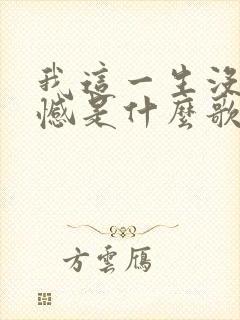 我這一生沒
憾是什麼歌
方雲鴈